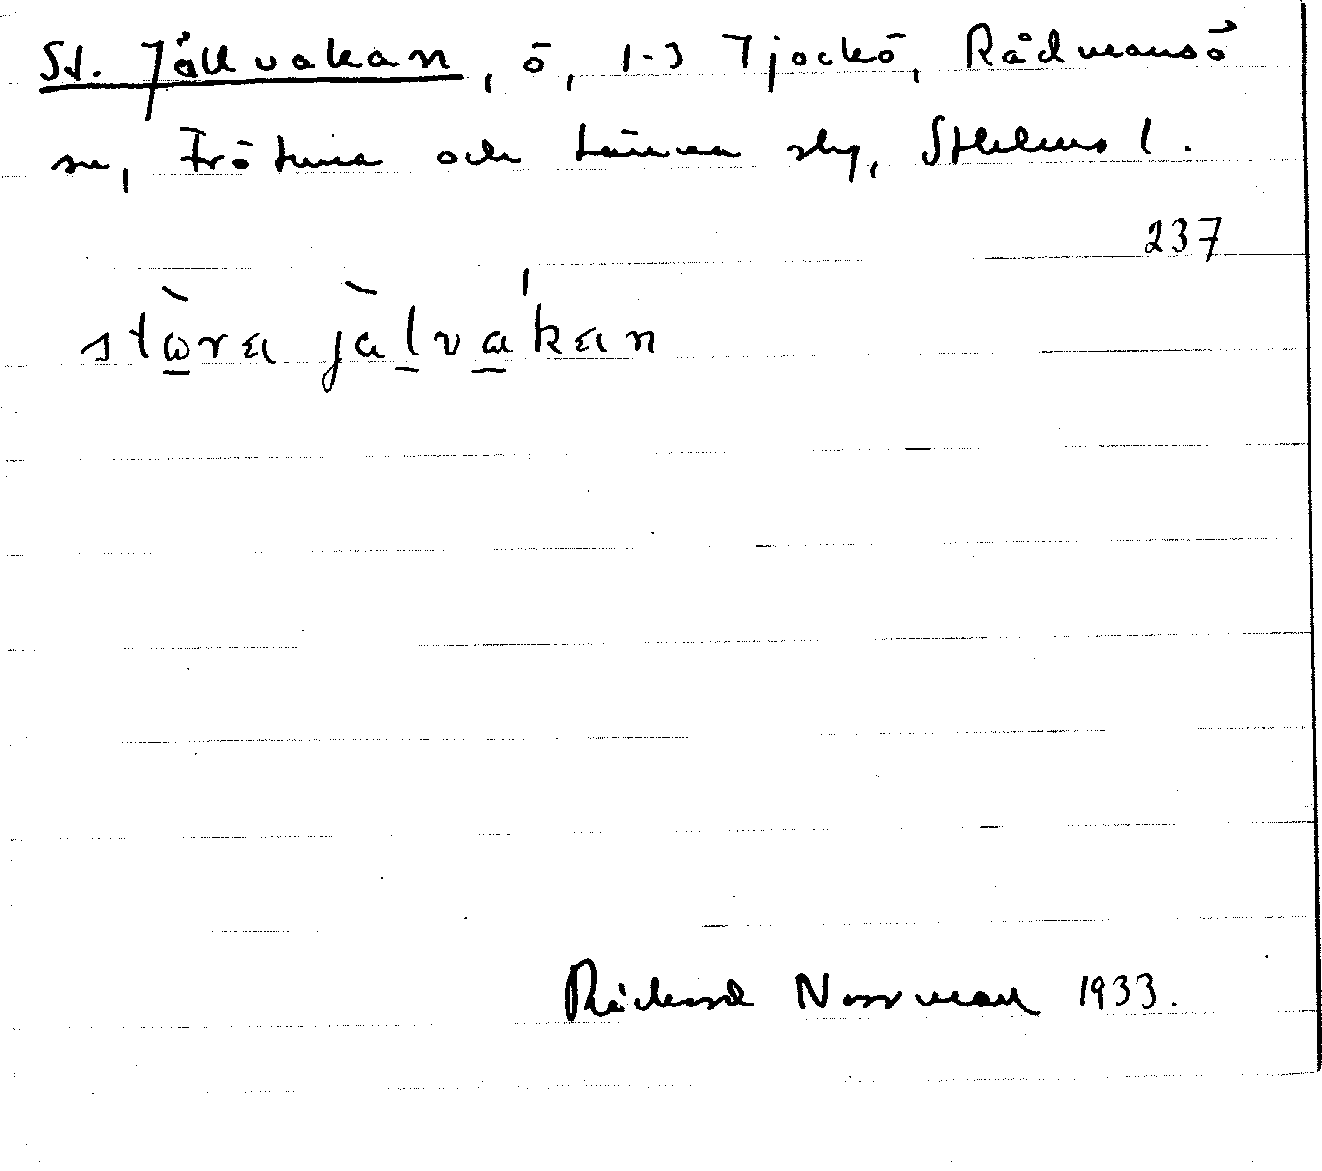 St. Jällvakan, ö, 1-3 Tjockö, Rådmansö
sn, Frötuna och Länna skg, Sthlms l.
237
stora jälvakan
Rickard Norrman 1933.